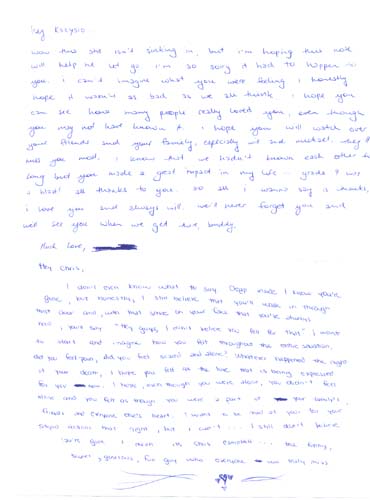 Hey
now this isn't sinking in, but i'm hoping this note
will help me let go i'm so sorry it had to happen to
you. i can't imagine what you were feeling i honestly
hope it wasn't as bad as we all think. i hope you
can see how many people really loved you, even though
you may not have known it. i hope you will watch over
your friends and your family, especially
miss you most. i know that we hadn't known each other
long but you made a great impact in my life -- grade 9 was
a blast all thanks to you. so all i wanna say is thanks,
i love you and always will. we'll never forget you and
we'll see you when we get there, buddy.
Much Love,
Hey Chris,
I don't even know what to say. Deep inside I know you're
gone, but honestly, I still believe that you'll walk in through
that door and, with that smile on your face that you're always
, you'll say "Hey guys, I can't believe you fell for that" I want
to start and imagine how you felt throughout the entire situation,
did you feel pain, did you feel scared and alone? Whatever happened the night
of your death, I hope you felt all the love that is being expressed
for you now. I hope, even though you were alone, you didn't feel
alone and you felt as though you were a part of your family's,
friends and everyone else's heart. I want to be mad at you for your
stupid actions that night, but i can't... I still don't believe
you're gone I mean its Chris ... the funny,
sweet, generous, fun guy who everyone will truly miss